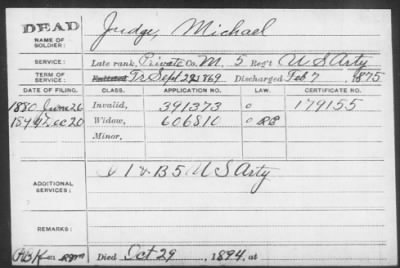 DEAD
NAME OF SOLDIER: Judge, Michael
SERVICE: Late rank, Private Co. M, 5 Reg't U S Arty
TERM OF SERVICE: Enlisted Tr Sept 22 1869 Discharged Feb 7, 1875
DATE OF FILING. CLASS. APPLICATION NO. LAW. CERTIFICATE NO.
1880 June 26 Invalid, 391373 179155
20 Widow, 606810
Minor,
ADDITIONAL SERVICES: B 5 U S Arty
REMARKS:
Died Oct 29, 1894, at